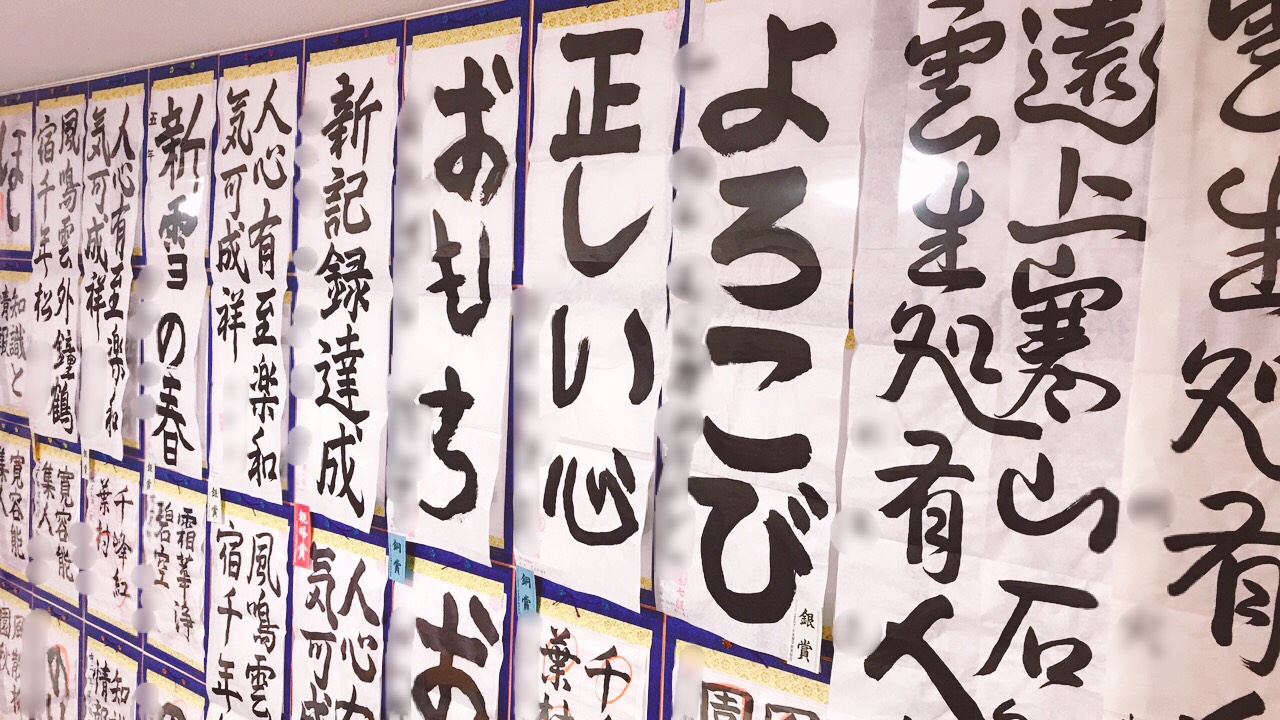 遠上寒山石
雲生処有人
雲生処有
よろこび
銀賞
正しい心
銅賞
おもち
銅賞
新記録達成
親峰賞
人心有至楽和
気可成祥
銀賞
新雪の春
五年
人心有至楽和
気可成祥
風鳴雲外鐘鶴
宿千年松
知識と
情報
千
葉村
お
人心
気可成
風鳴雲
宿千年
霜華浄
碧空
千峰紅
葉村
寛容能
集人
寛容能
集人
知
情報
の
園